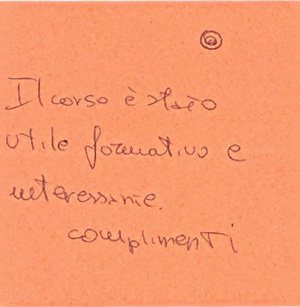 Il corso è stato
utile formativo e
interessante.
complimenti